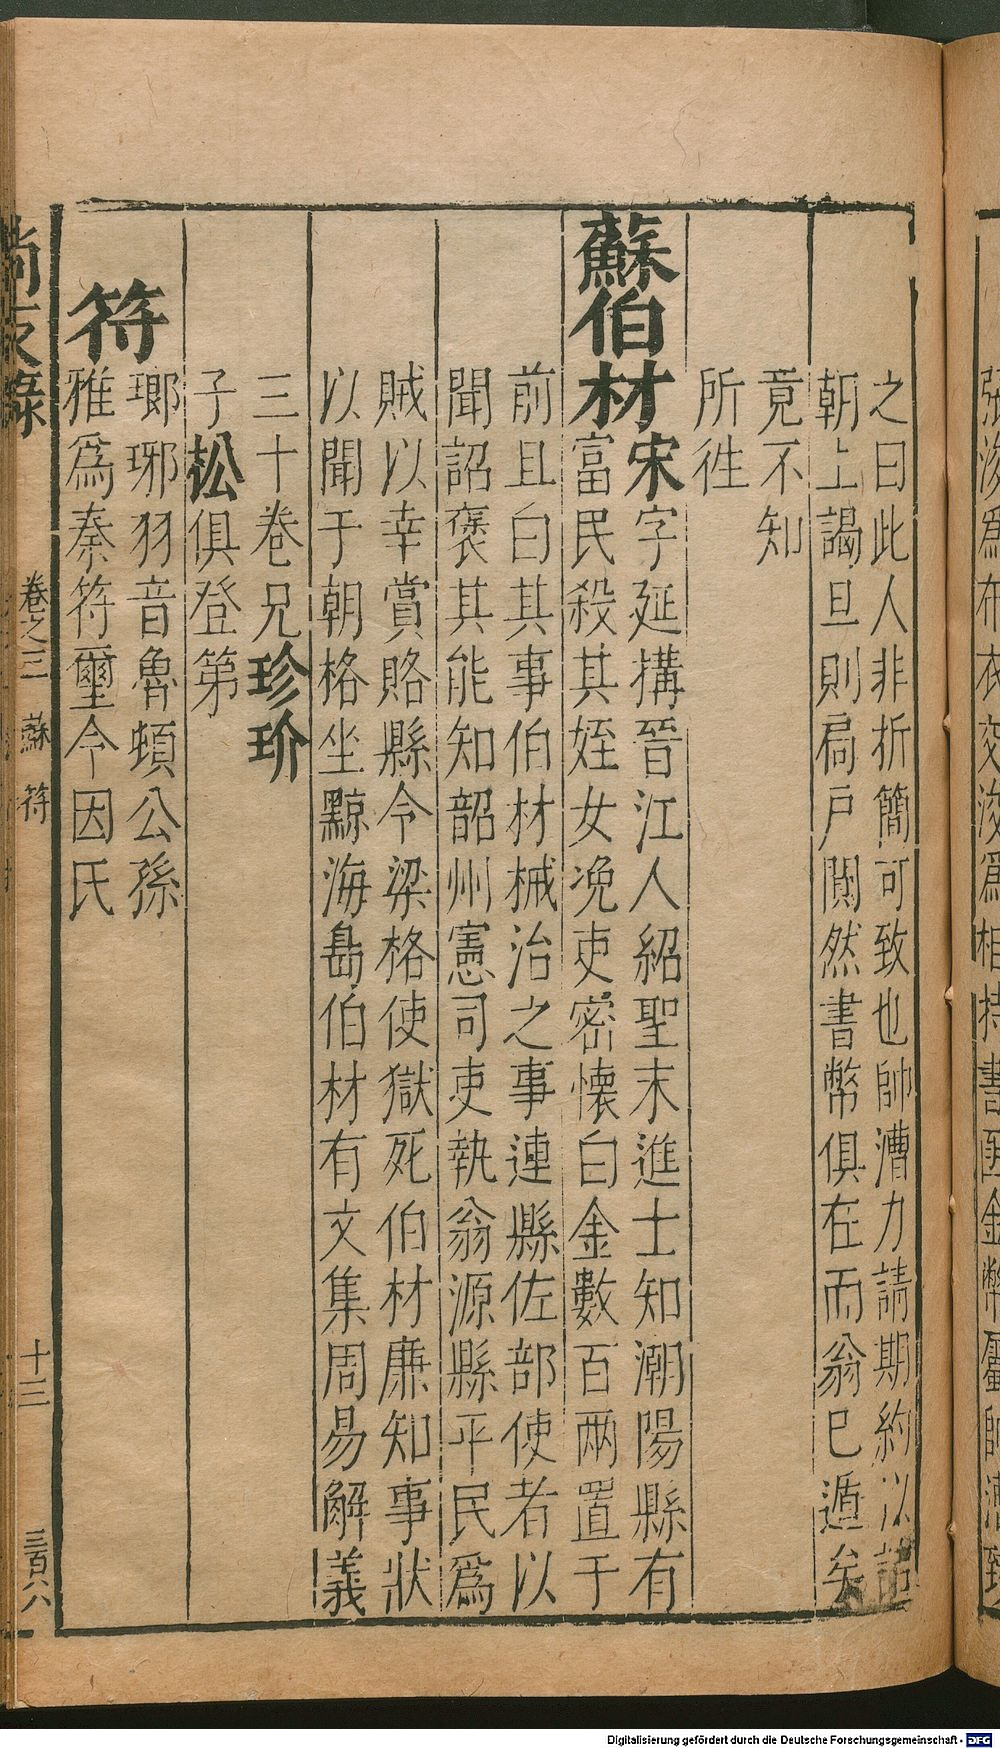 之曰此人非折簡可致也帥漕力請期約以詰
朝上謁旦則扃戶闃然書幣俱在而翁已遁矣
竟不知
所徃
蘇伯材宋字延搆晉江人紹聖末進士知潮陽縣有
富民殺其姪女浼吏密懐白金數百兩置于
前且白其事伯材械治之事連縣佐部使者以
聞詔褒其能知韶州憲司吏執翁源縣平民爲
賊以幸賞賂縣令梁格使獄死伯材廉知事狀
以聞于朝格坐黥海島伯材有文集周易解義
三十卷兄珍玠
子松俱登第
符瑯琊羽音魯頓公孫
雅爲秦符璽令因氏
尚友錄
卷之三 蘇 符
十三
三百六
張浚爲布衣交浚爲相持書函金幣屬帥漕致
Digitalisierung gefördert durch die Deutsche Forschungsgemeinschaft - DFG